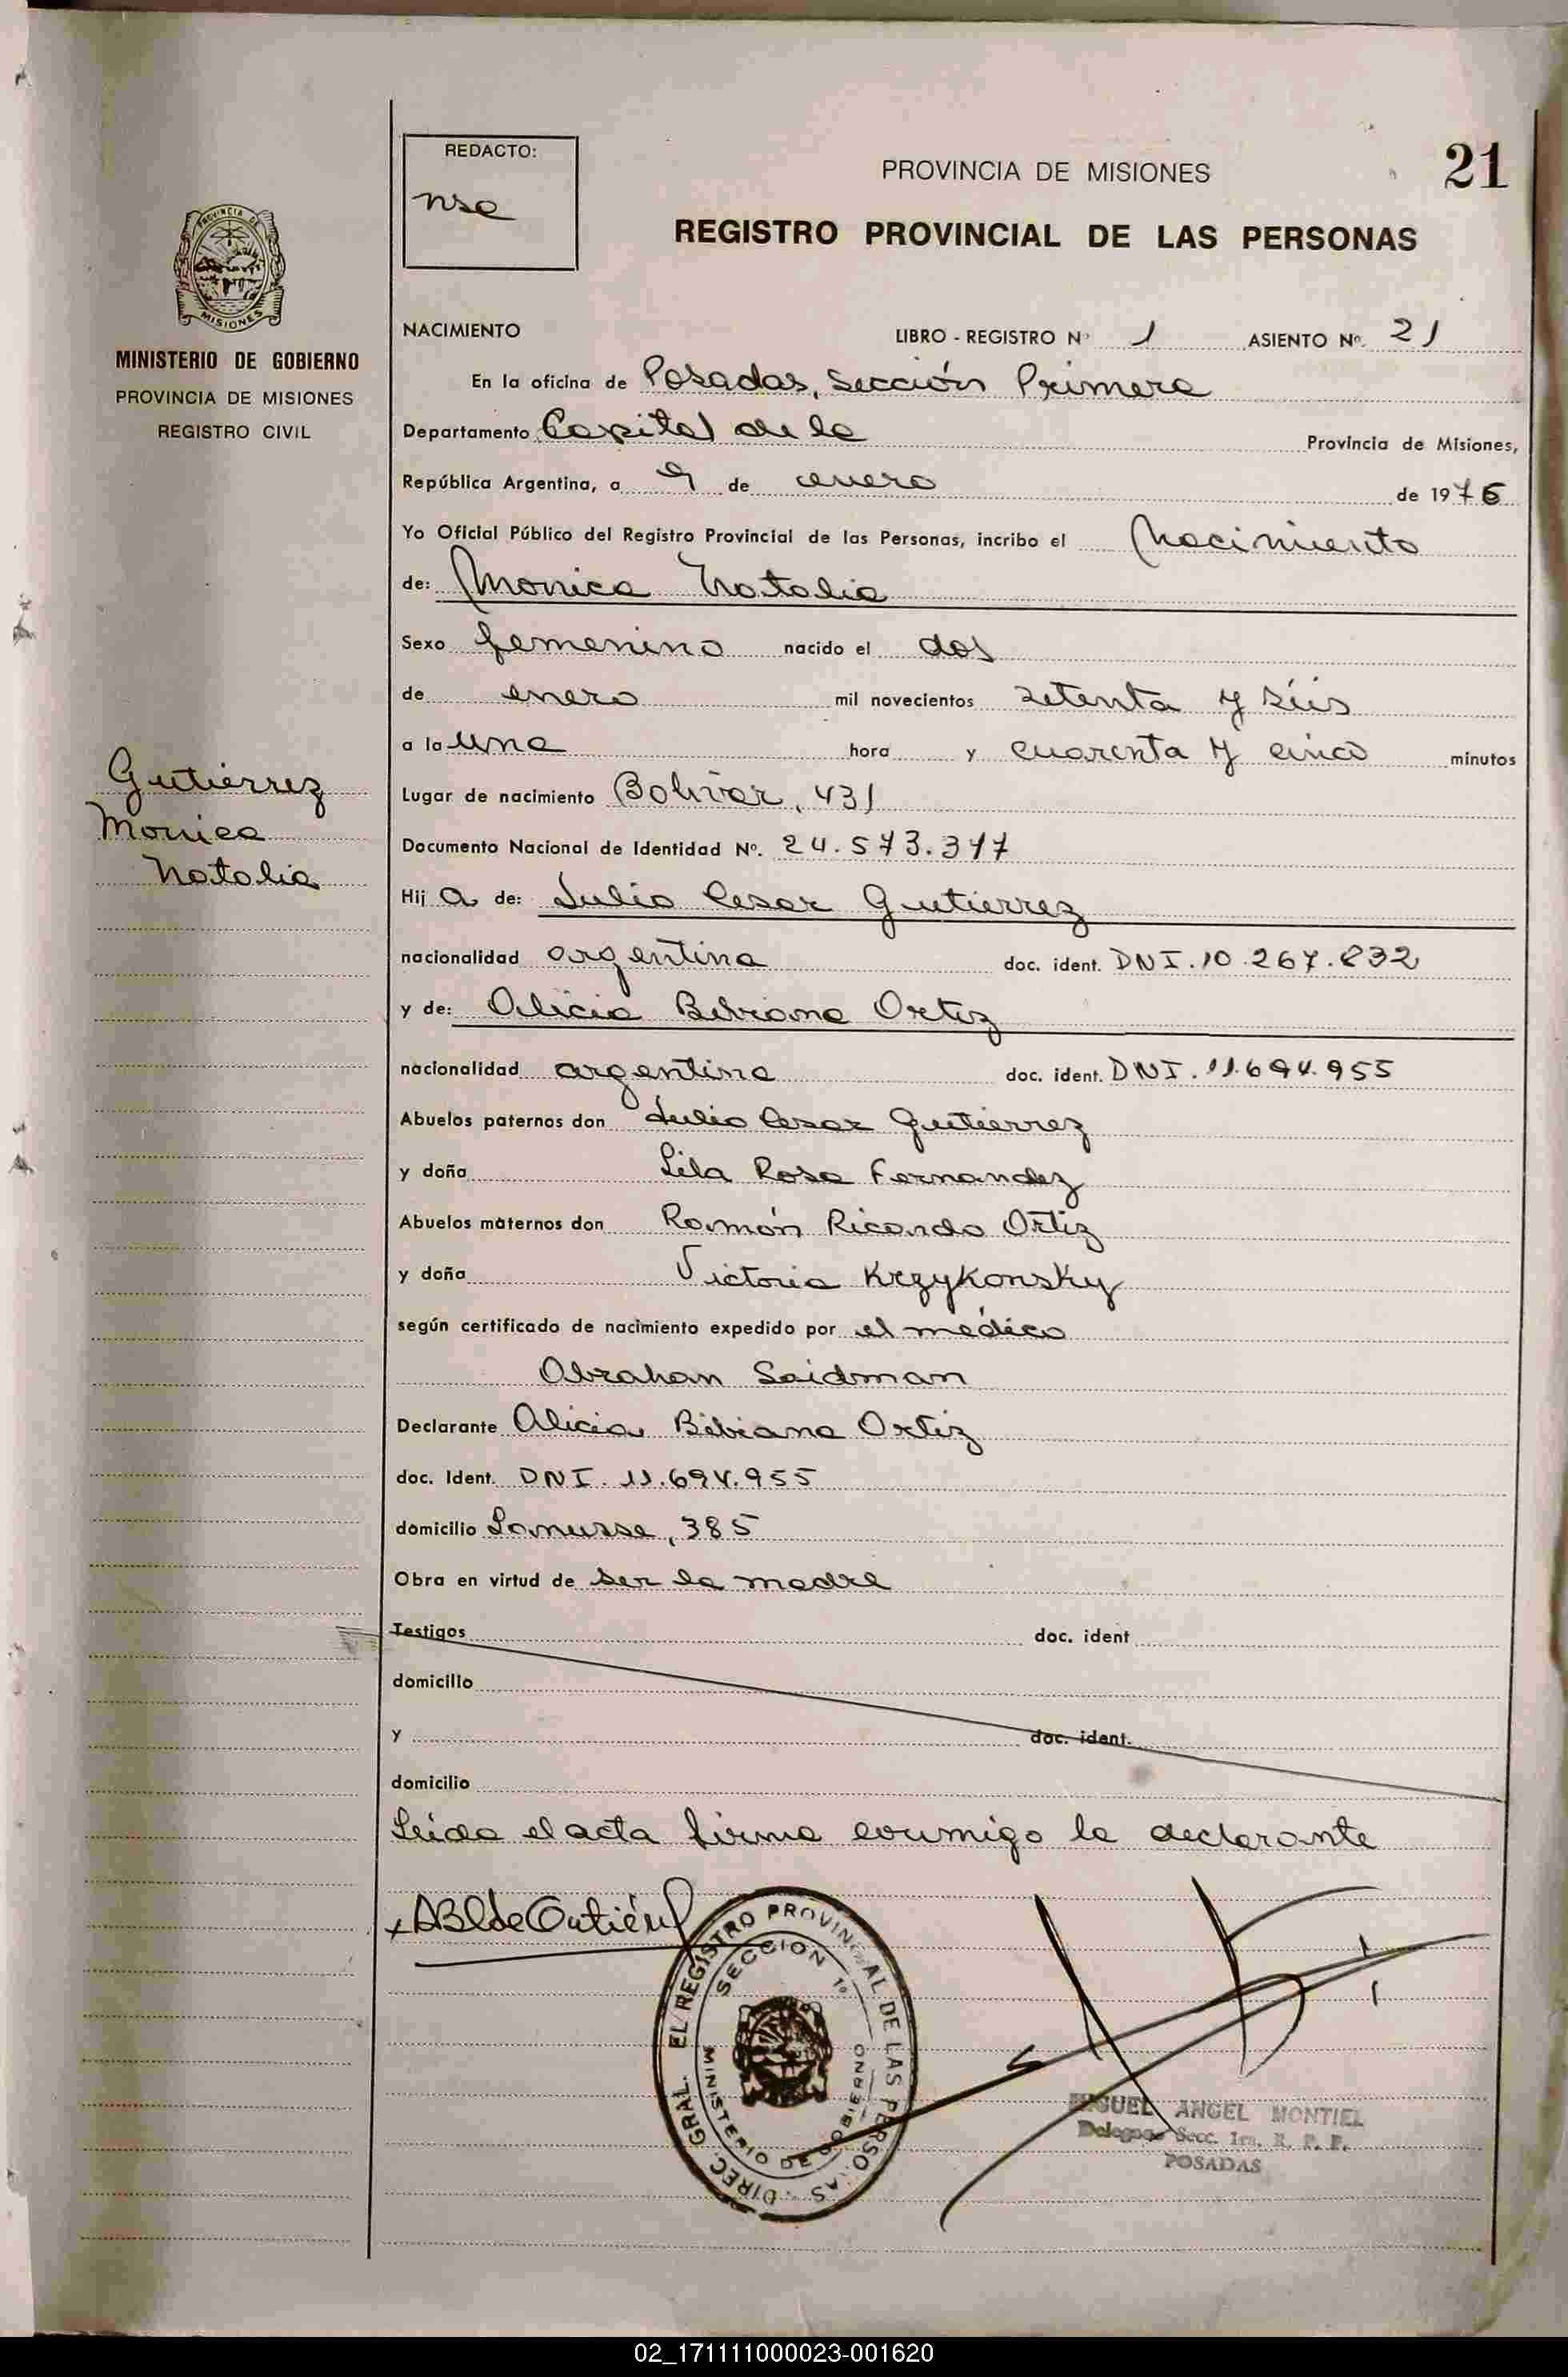 REDACTO:
nse
PROVINCIA DE MISIONES
21
REGISTRO PROVINCIAL DE LAS PERSONAS
PROVINCIA DE
MISIONES
MINISTERIO DE GOBIERNO
PROVINCIA DE MISIONES
REGISTRO CIVIL
Gutiérrez
Monica
Natalia
NACIMIENTO LIBRO - REGISTRO Nº 1 ASIENTO Nº. 21
En la oficina de Posadas, Sección Primera
Departamento Capital de la Provincia de Misiones,
República Argentina, a 9 de enero de 1976
Yo Oficial Público del Registro Provincial de las Personas, incribo el Nacimiento
de: Monica Natalia
Sexo femenino nacido el dos
de enero mil novecientos setenta y séis
a la una hora y cuarenta y cinco minutos
Lugar de nacimiento Bolívar, 431
Documento Nacional de Identidad Nº. 24.573.377
Hij a de: Julio Cesar Gutierrez
nacionalidad argentina doc. ident. DNI.10.267.832
y de: Alicia Bibiana Ortiz
nacionalidad argentina doc. ident. DNI.11.694.955
Abuelos paternos don Julio Cesar Gutiérrez
y doña Lila Rosa Fernandez
Abuelos maternos don Ramón Ricardo Ortiz
y doña Victoria Krzykonsky
según certificado de nacimiento expedido por el médico
Abraham Saidman
Declarante Alicia Bibiana Ortiz
doc. Ident. DNI. 11.694.955
domicilio Lanusse, 385
Obra en virtud de ser la madre
Testigos doc. ident
domicilio
y doc. ident.
domicilio
Leida el acta firma conmigo la declarante
DIREC. GRAL. EL REGISTRO PROVINCIAL DE LAS PERSONAS
SECCION 1º
MINISTERIO DE GOBIERNO
MIGUEL ANGEL MONTIEL
Delegado Secc. 1ra. R. P. P.
POSADAS
02_171111000023-001620